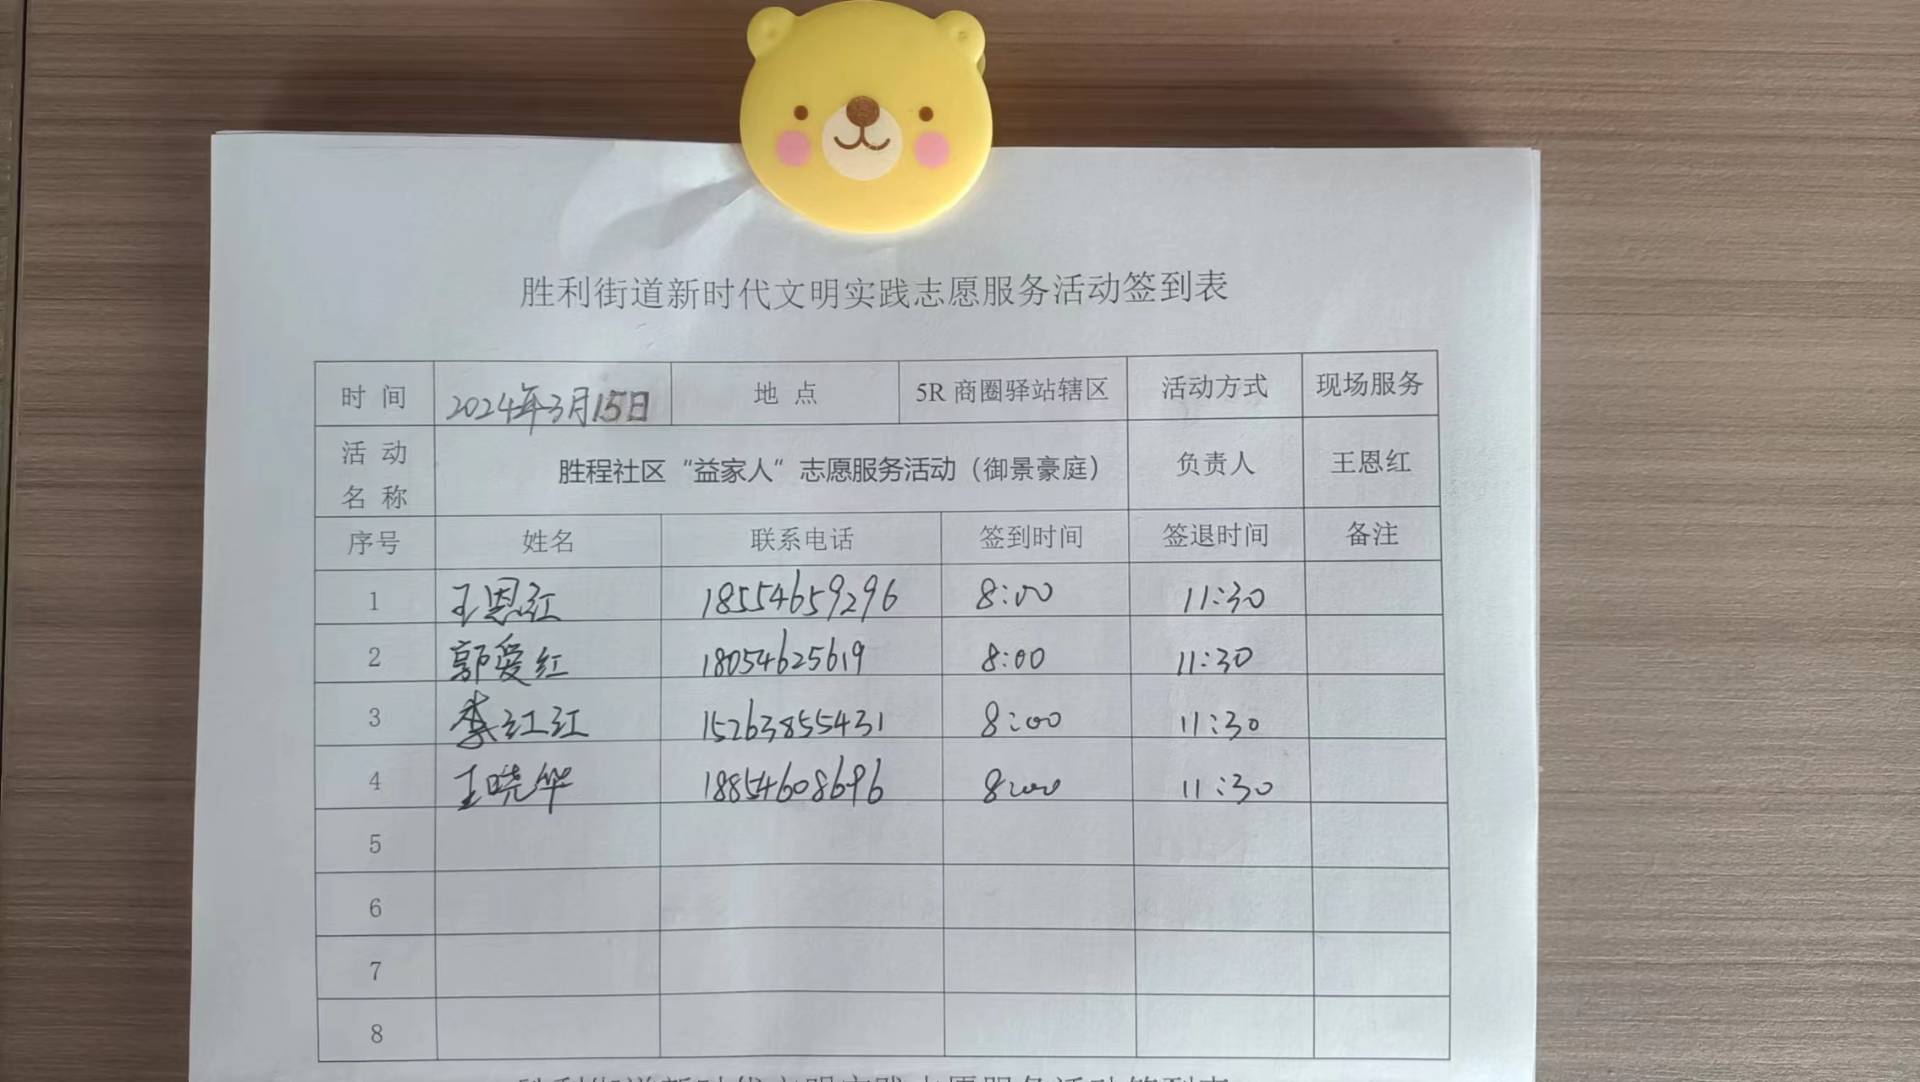 胜利街道新时代文明实践志愿服务活动签到表
时 间 2024年3月15日 地 点 5R 商圈驿站辖区 活动方式 现场服务
活 动 名 称 胜程社区“益家人”志愿服务活动（御景豪庭） 负责人 王恩红
序号 姓名 联系电话 签到时间 签退时间 备注
1 王恩红 18554659296 8:00 11:30
2 郭爱红 18054625619 8:00 11:30
3 李红红 15263855431 8:00 11:30
4 王晓华 18854608696 8:00 11:30
5
6
7
8
胜利街道新时代文明实践志愿服务活动签到表